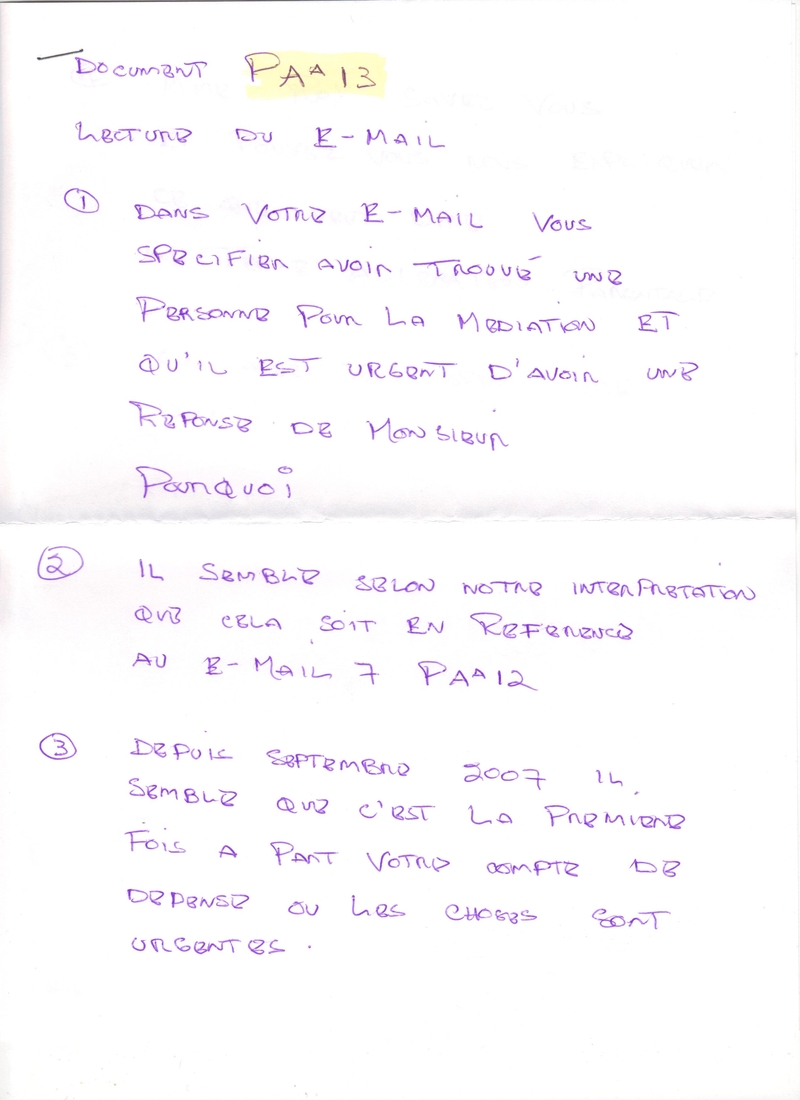 DOCUMENT PAA 13
LECTURE DU E-MAIL
① DANS VOTRE E-MAIL VOUS
SPECIFIER AVOIR TROUVÉ UNE
PERSONNE POUR LA MEDIATION ET
QU'IL EST URGENT D'AVOIR UNE
REPONSE DE MONSIEUR
POURQUOI
② IL SEMBLE SELON NOTRE INTERPRETATION
QUE CELA SOIT EN REFERENCE
AU E-MAIL 7 PAA 12
③ DEPUIS SEPTEMBRE 2007 IL
SEMBLE QUE C'EST LA PREMIERE
FOIS A PART VOTRE COMPTE DE
DEPENSE OU LES CHOSES SONT
URGENTES.